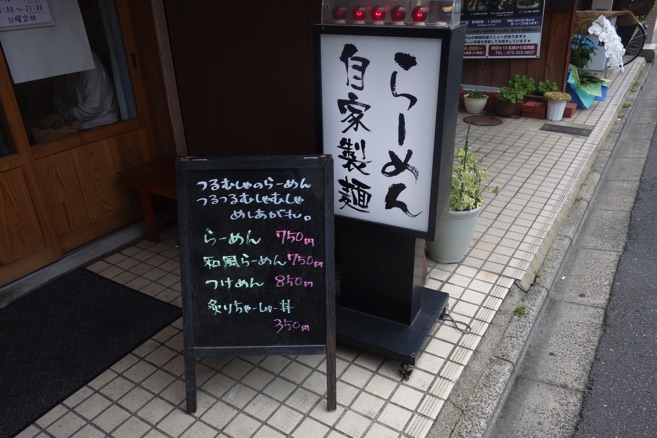 日曜定休
らーめん
自家製麺
つるむしゃのらーめん
つるつるむしゃむしゃ
めしあがれ。
らーめん 750円
和風らーめん 750円
つけめん 850円
炙りちゃーしゅー丼
350円